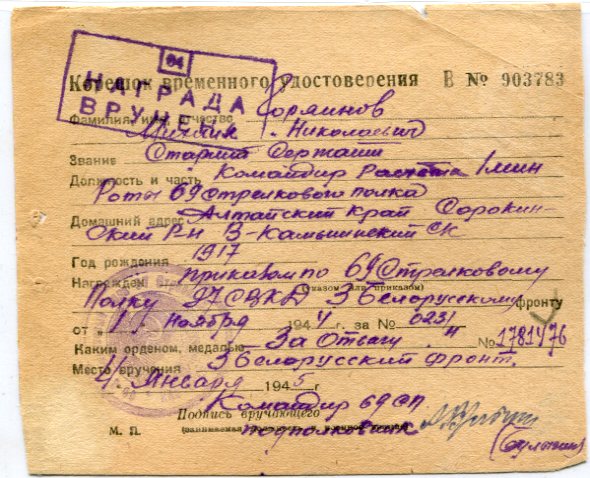 64
НАГРАДА
ВРУЧЕНА
Корешок временного удостоверения В № 903783
Фамилия, имя, отчество Горяинов
Николаевич
Звание Старший Сержант
Должность и часть Командир Расчета 1 мин
Роты 69 Стрелкового полка
Домашний адрес Алтайский край Сорокин-
ский Р-н В-Камышинский СК
Год рождения 1917
Награжден приказом по 69 Стрелковому
(указом или приказом)
Полку 97 СДККД 3 Белорусскому фронту
от " 17 ноября 1944 г. за № 0231
Каким орденом, медалью "За Отвагу" № 1781476
Место вручения 3 Белорусский фронт.
4. Января 1945 г
Командир 69 СП
Подпись вручающего
подполковник
М. П.